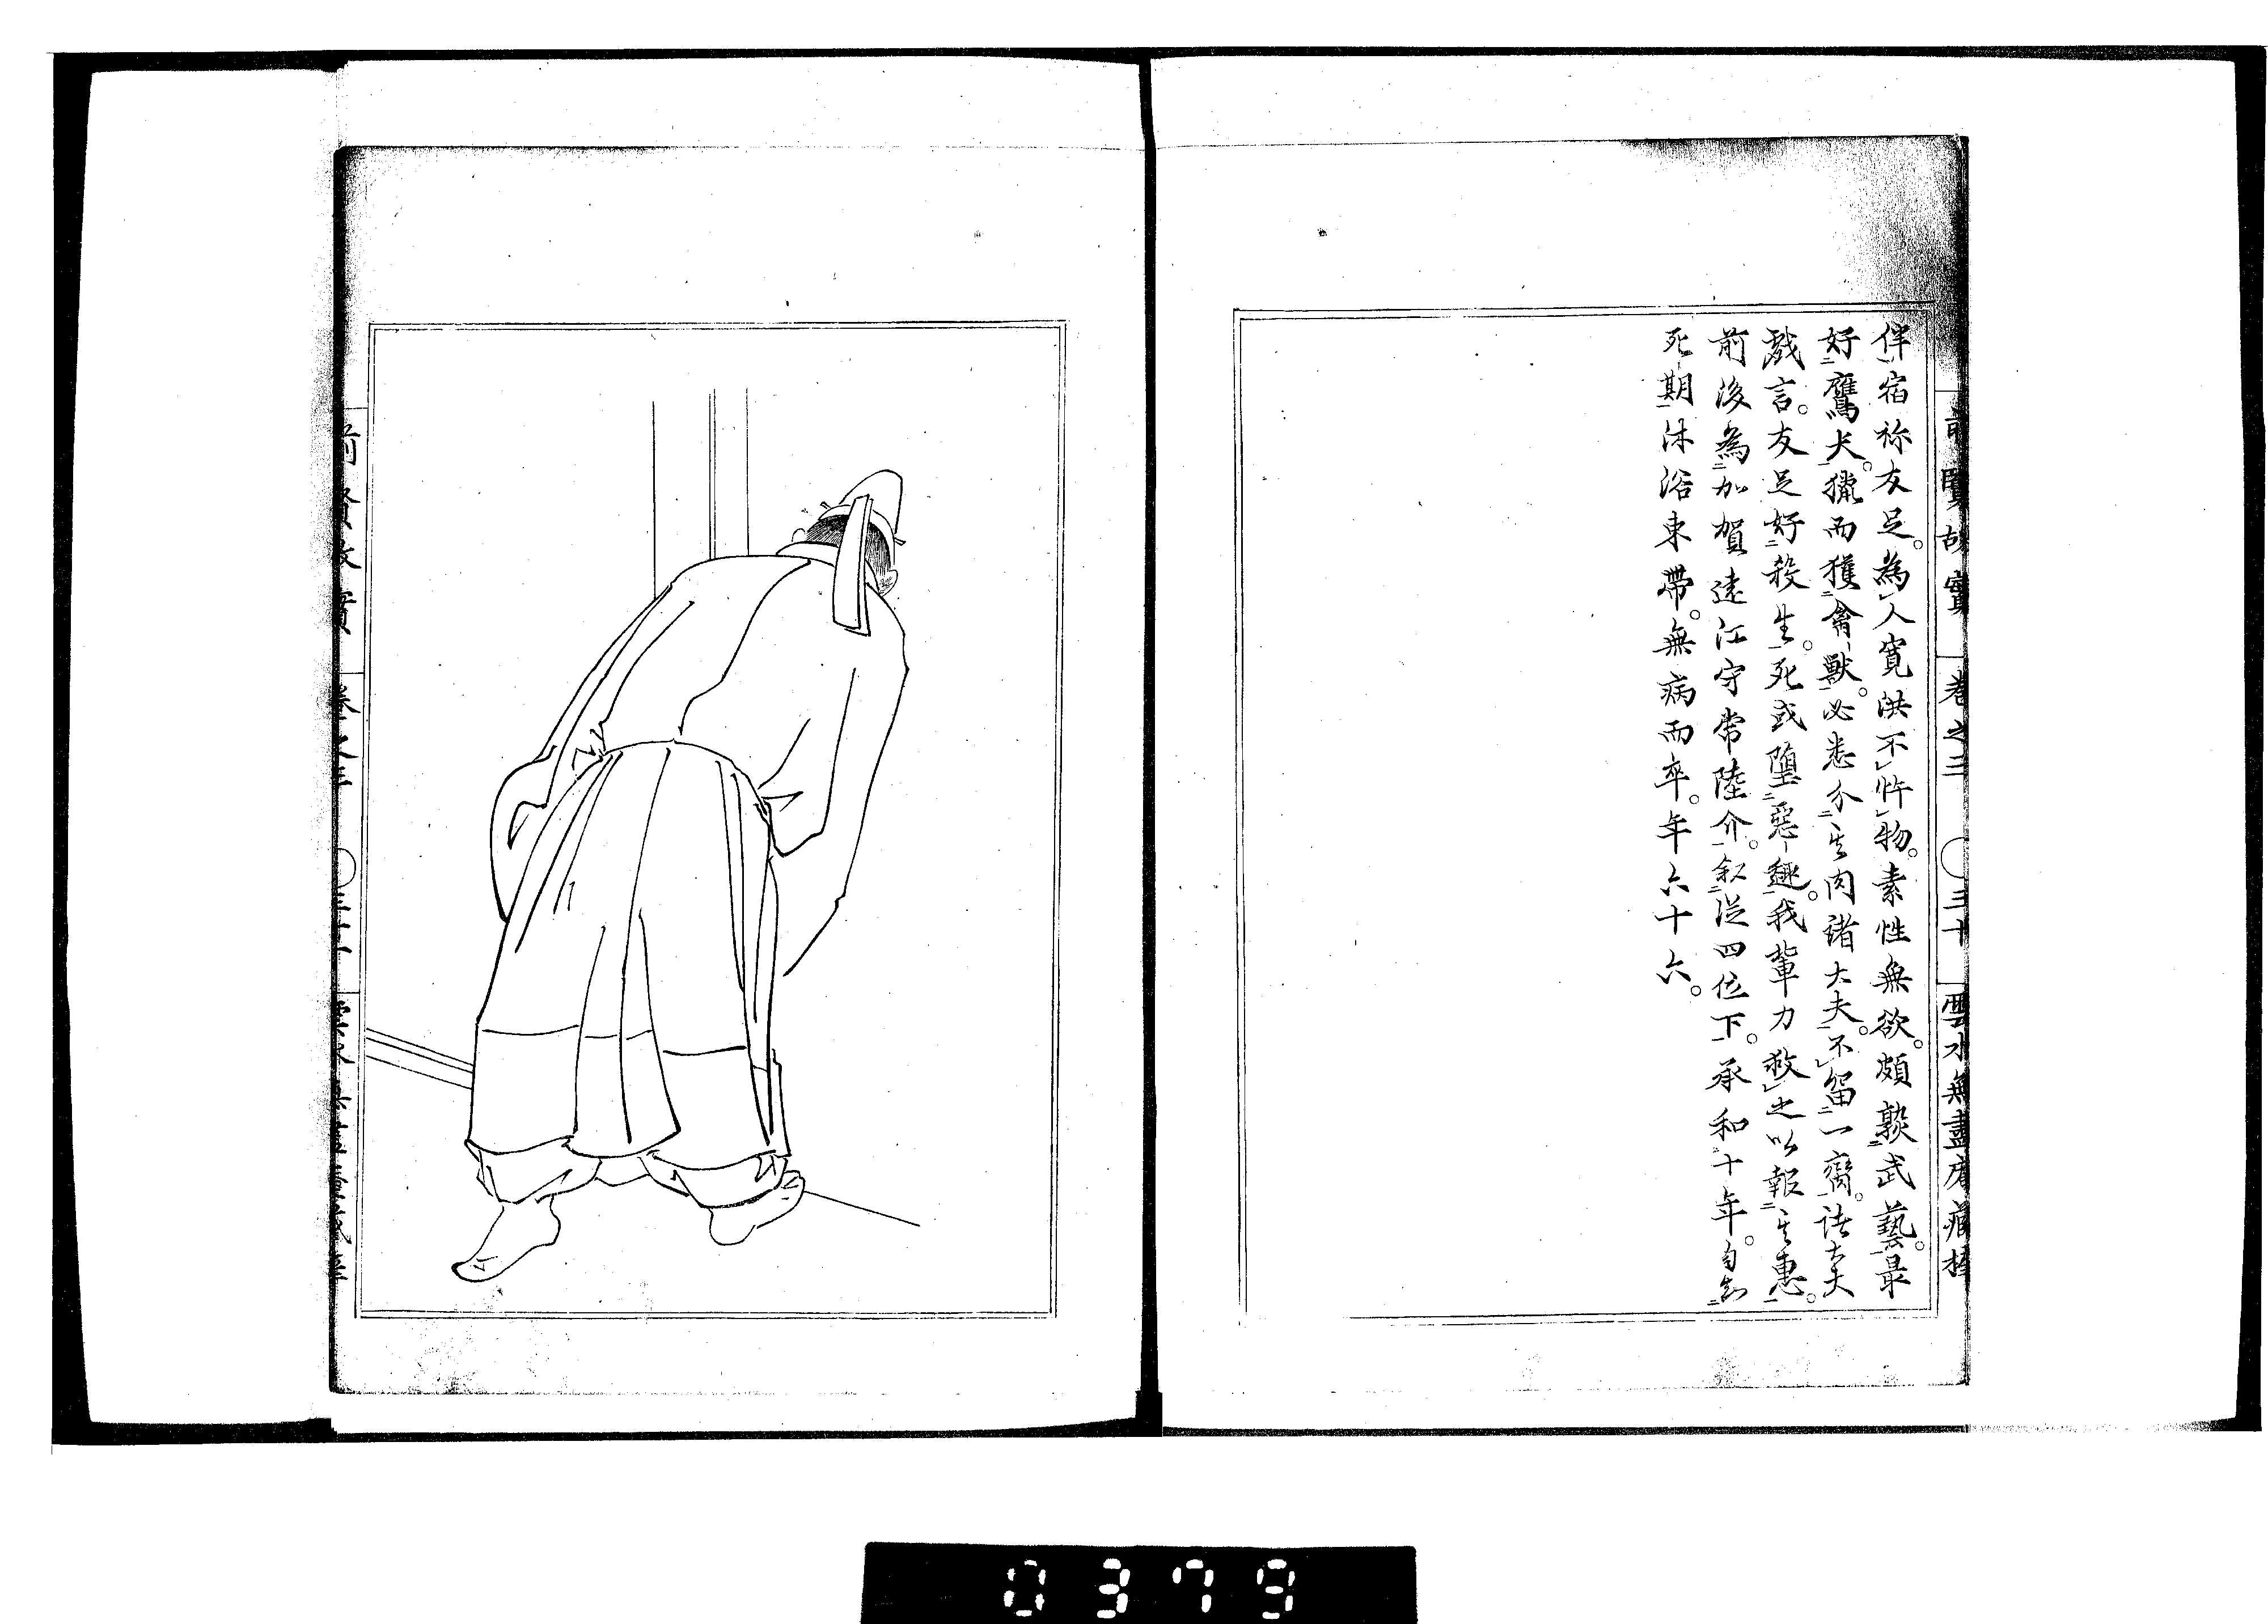 伴宿祢友足。為人寛洪不忤物。素性無欲。頗熟武藝。最
好鷹犬。獵而獲禽獸。必悉分其肉諸大夫。不留一臠。諸大夫
戲言。友足好殺生。死或墮惡趣。我輩力救之以報其惠。
前後為加賀遠江守常陸介。叙従四位下。承和十年。自知
死期沐浴束帶。無病而卒。年六十六。
前賢故實 卷之三 ○三十 雲水無盡庵藏梓
前賢故實 卷之三
0379